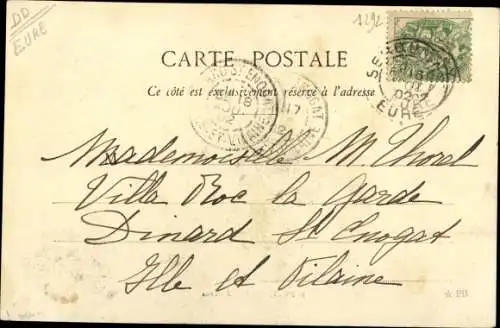 DD
EURE
1292
CARTE POSTALE
Ce côté est exclusivement réservé à l'adresse
Mademoiselle M. Thoral
Villa Roc la Garde
Dinard St Enogat
Ille et Vilaine
EURE
PB